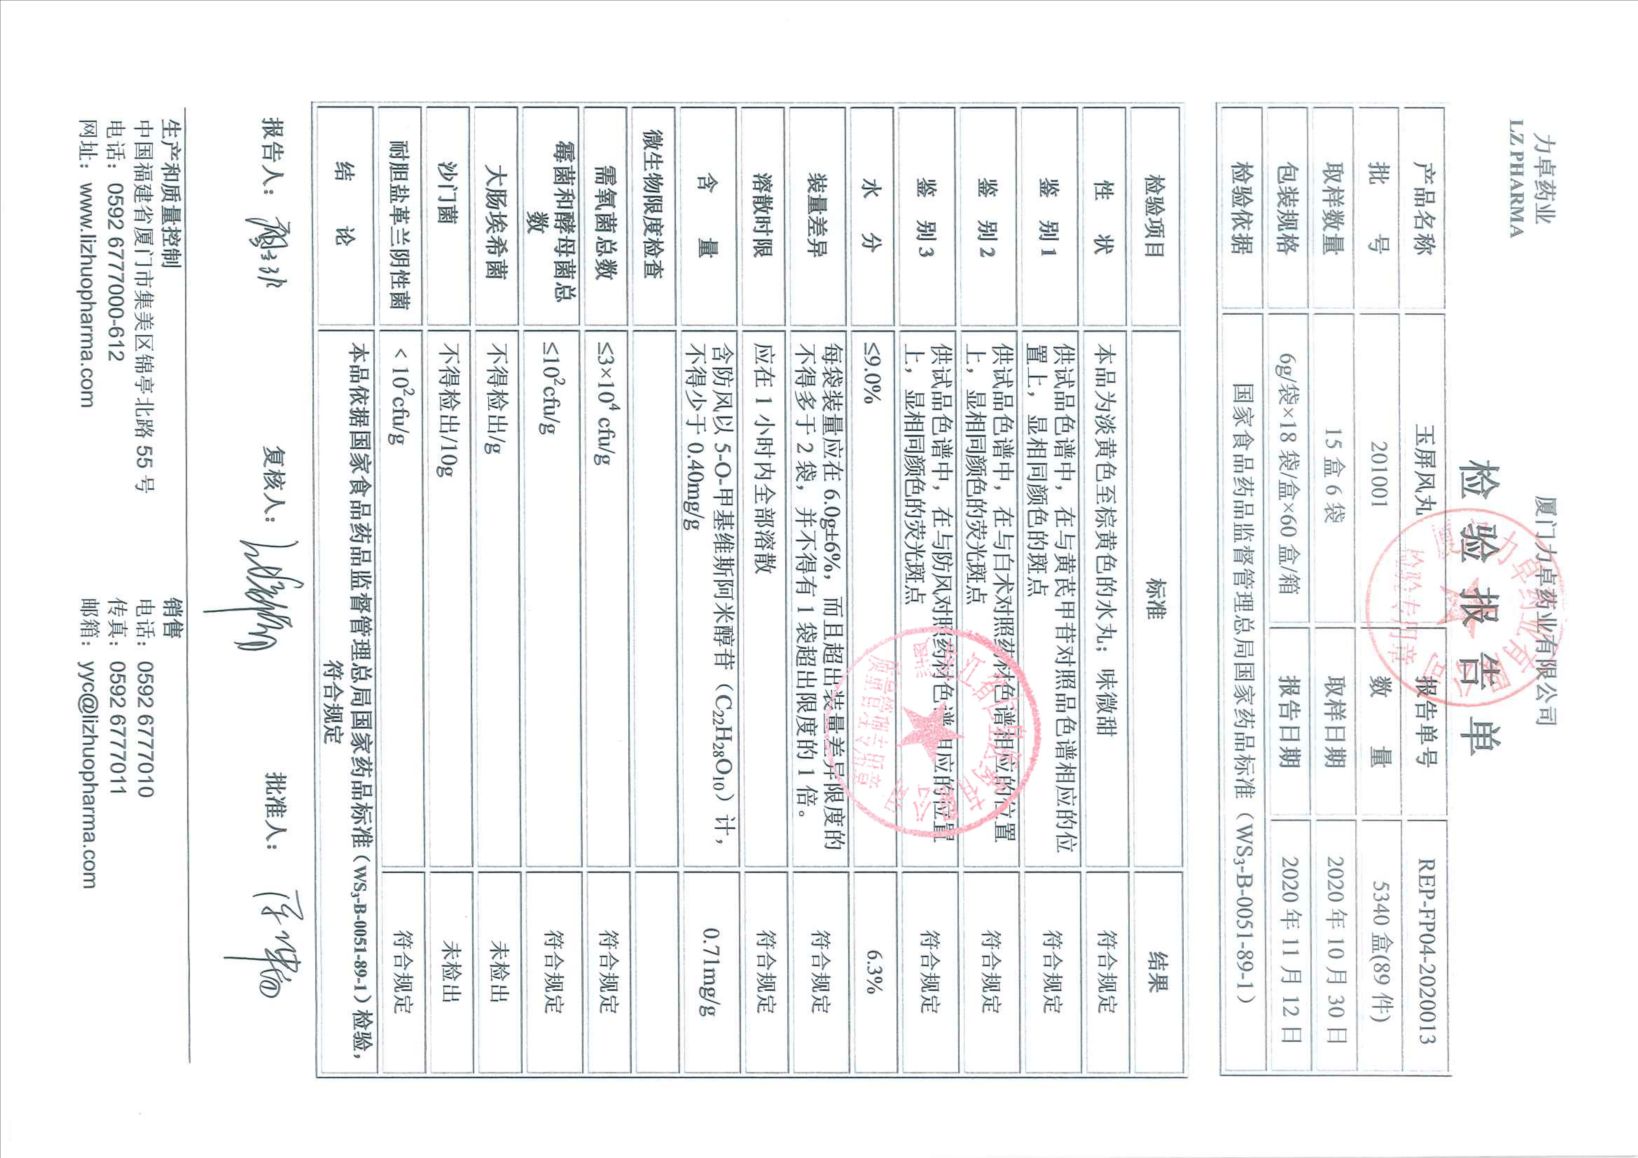 力卓药业
LZ PHARMA
厦门力卓药业有限公司
检验报告单
产品名称 玉屏风丸 报告单号 REP-FP04-2020013
批 号 201001 数 量 5340 盒(89 件)
取样数量 15 盒 6 袋 取样日期 2020 年 10 月 30 日
包装规格 6g/袋×18 袋/盒×60 盒/箱 报告日期 2020 年 11 月 12 日
检验依据 国家食品药品监督管理总局国家药品标准（WS₃-B-0051-89-1）
检验项目 标准 结果
性 状 本品为淡黄色至棕黄色的水丸；味微甜 符合规定
鉴 别 1 供试品色谱中，在与黄芪甲苷对照品色谱相应的位
置上，显相同颜色的斑点 符合规定
鉴 别 2 供试品色谱中，在与白术对照药材色谱相应的位置
上，显相同颜色的荧光斑点 符合规定
鉴 别 3 供试品色谱中，在与防风对照药材色谱相应的位置
上，显相同颜色的荧光斑点 符合规定
水 分 ≤9.0% 6.3%
装量差异 每袋装量应在 6.0g±6%，而且超出装量差异限度的
不得多于 2 袋，并不得有 1 袋超出限度的 1 倍。 符合规定
溶散时限 应在 1 小时内全部溶散 符合规定
含 量 含防风以 5-O-甲基维斯阿米醇苷（C₂₂H₂₈O₁₀）计，
不得少于 0.40mg/g 0.71mg/g
微生物限度检查
需氧菌总数 ≤3×10⁴ cfu/g 符合规定
霉菌和酵母菌总
数 ≤10²cfu/g 符合规定
大肠埃希菌 不得检出/g 未检出
沙门菌 不得检出/10g 未检出
耐胆盐革兰阴性菌 < 10²cfu/g 符合规定
结 论 本品依据国家食品药品监督管理总局国家药品标准（WS₃-B-0051-89-1）检验，
符合规定
报告人： 复核人： 批准人：
生产和质量控制
中国福建省厦门市集美区锦亭北路 55 号
电话：0592 6777000-612
网址：www.lizhuopharma.com
销售
电话：0592 6777010
传真：0592 6777011
邮箱：yyc@lizhuopharma.com